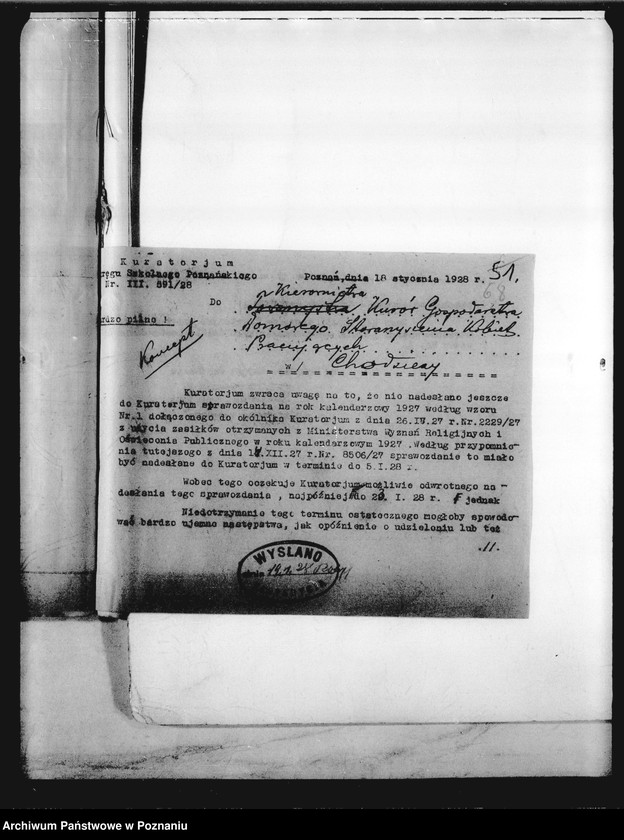 Kuratorjum
ręgu Szkolnego Poznańskiego
Nr. III. 591/28
Poznań, dnia 18 stycznia 1928 r.
51.
68
Kierownictwa
Do Kursów Gospodarstwa
ardzo pilno !
Domowego Stowarzyszenia Kobiet
Koncept
Pracujących
w Chodzieży
Kuratorjum zwraca uwagę na to, że nie nadesłano jeszcze
do Kuratorjum sprawozdania na rok kalendarzowy 1927 według wzoru
Nr.1 dołączonego do okólnika Kuratorjum z dnia 26.IV.27 r.Nr.2229/27
z użycia zasiłków otrzymanych z Ministerstwa Wyznań Religijnych i
Oświecenia Publicznego w roku kalendarzowym 1927 .Według przypomnie-
nia tutejszego z dnia .XII.27 r.Nr. 8506/27 sprawozdanie to miało
być nadesłane do Kuratorjum w terminie do 5.I.28 r.
Wobec tego oczekuje Kuratorjum możliwie odwrotnego na -
desłania tego sprawozdania , najpóźniej do I. 28 r. jednak
Niedotrzymanie tego terminu ostatecznego mogłoby spowodo-
wać bardzo ujemne następstwa, jak opóźnienie o udzieleniu lub też
.//.
WYSŁANO
dnia 19.1.28
Archiwum Państwowe w Poznaniu